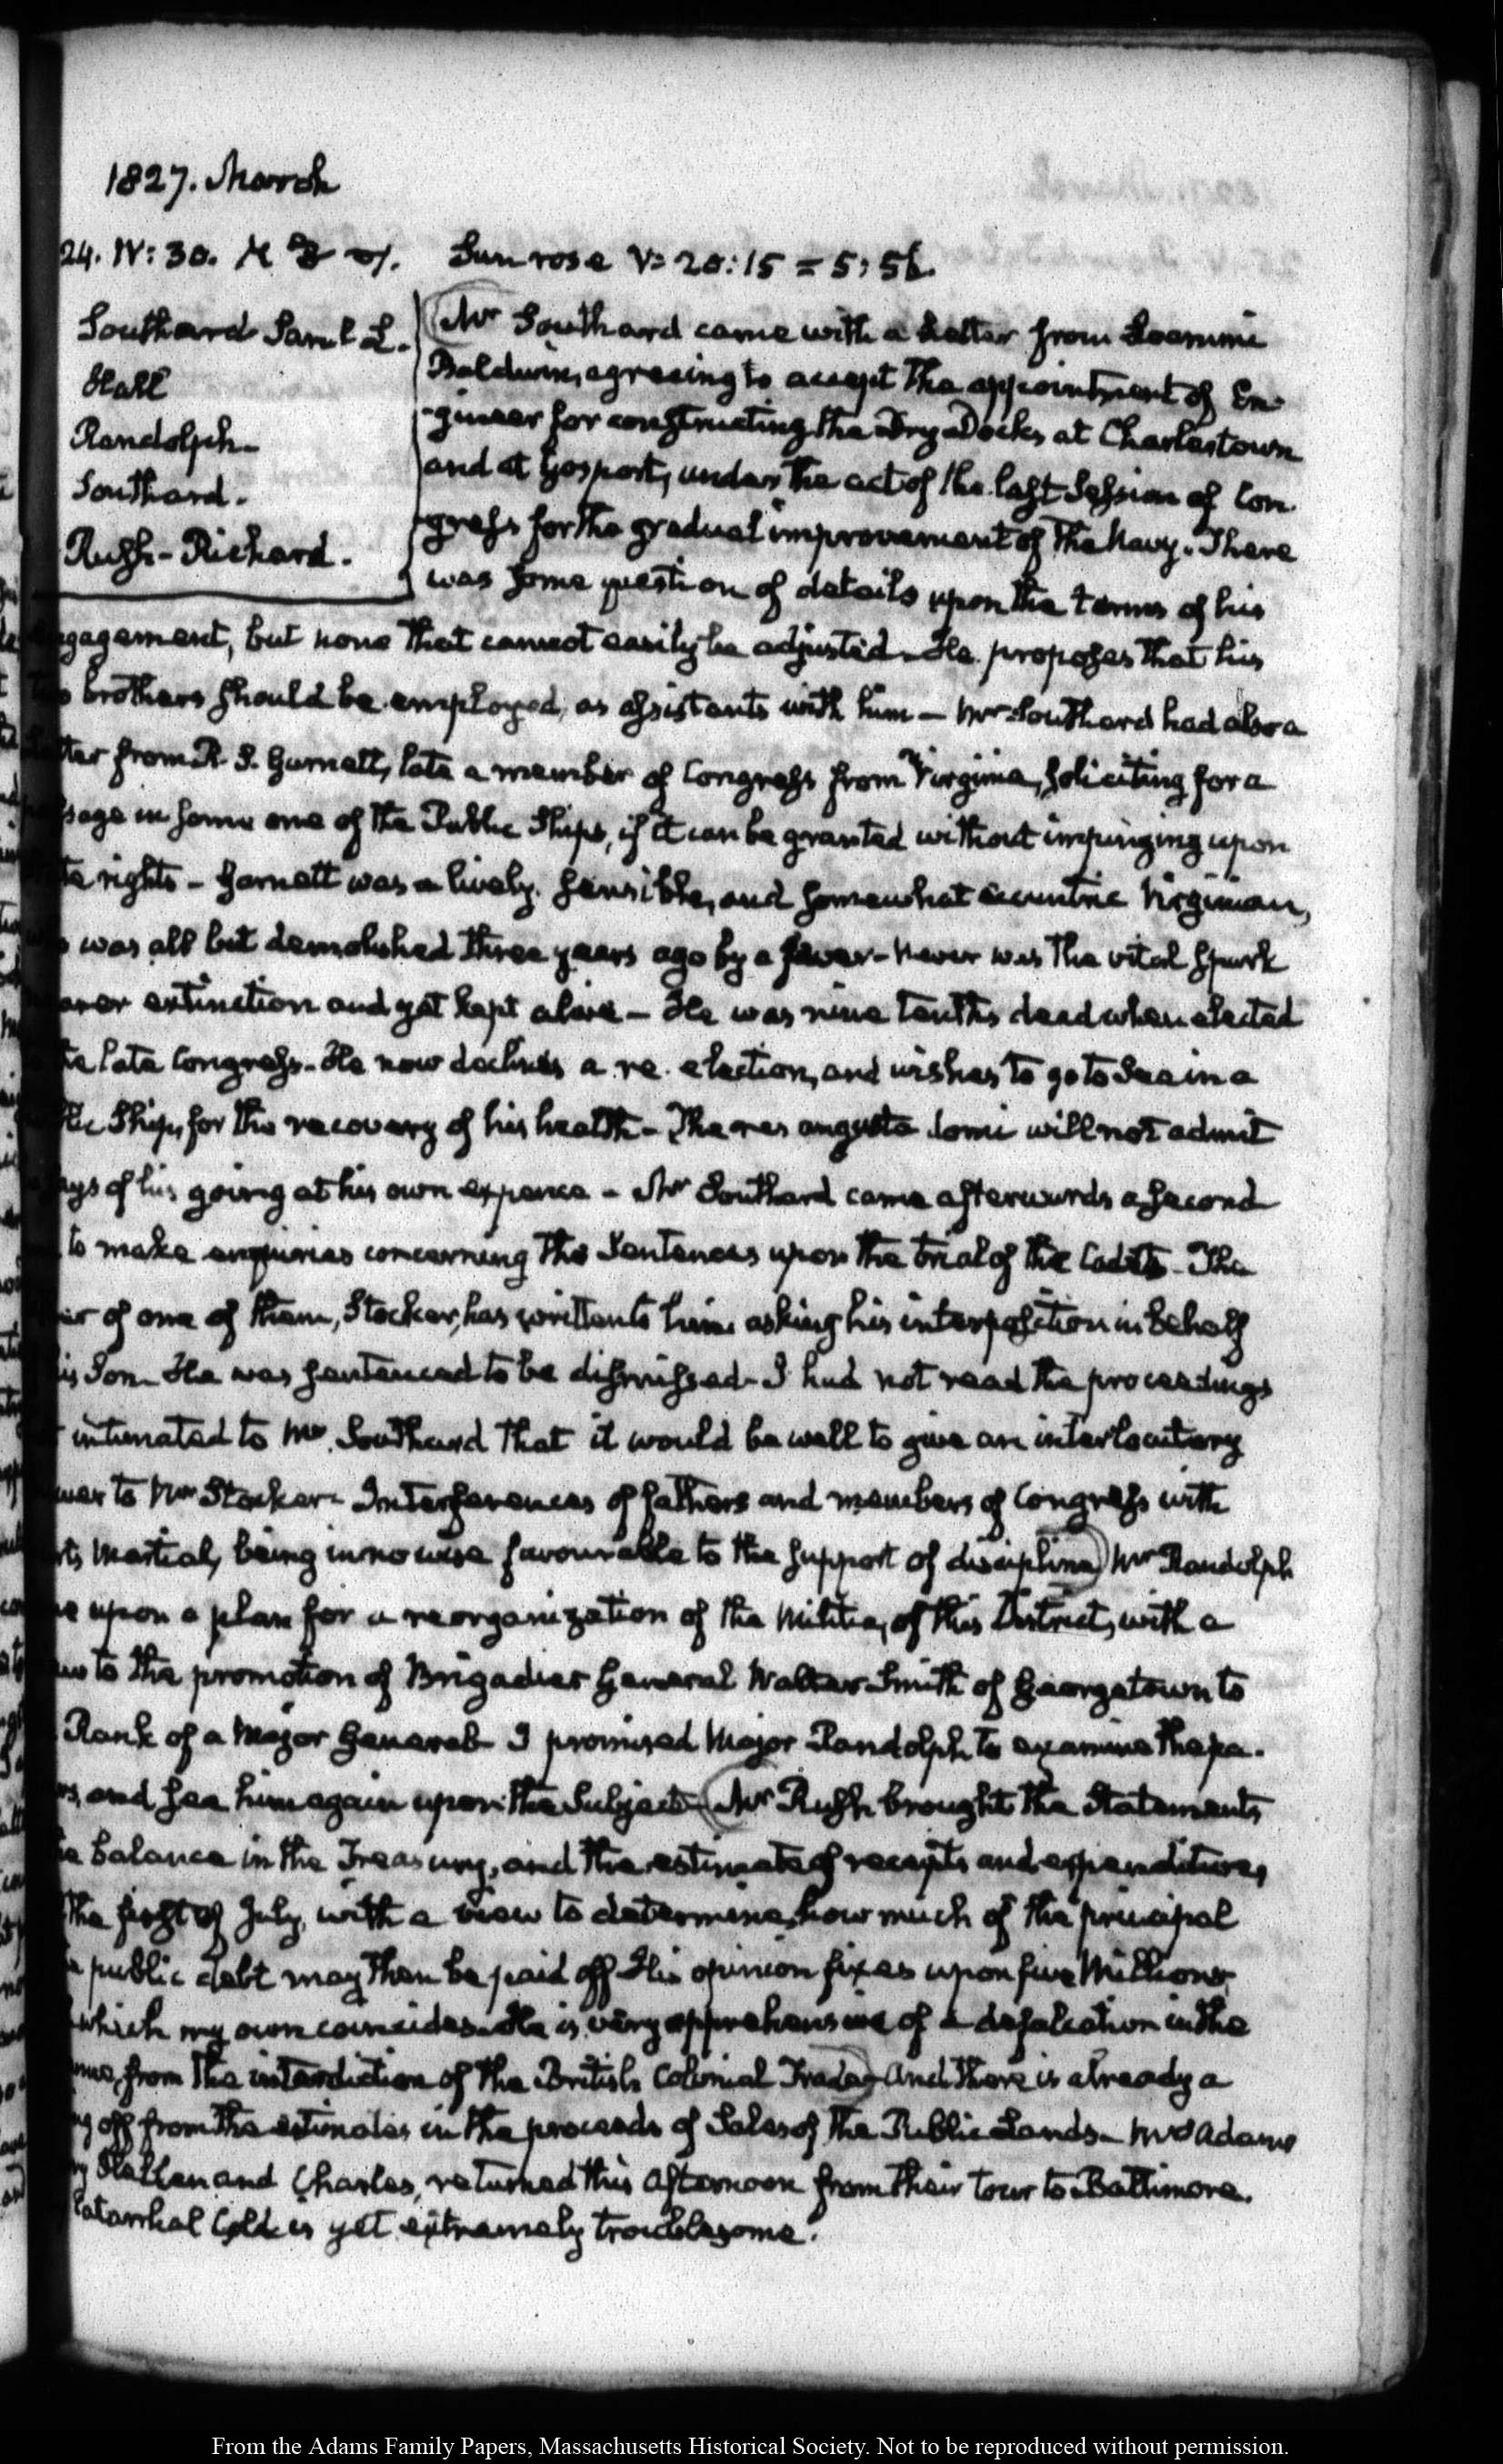 1827. March
24. IV: 30. Sun rose V: 20:15 = 5:56.
Southard Saml L.
Hall
Randolph
Southard.
Rush - Richard.
Mr Southard came with a Letter from Loammi
Baldwin, agreeing to accept the appointment of En-
-gineer for constructing the Dry Docks, at Charlestown
and at Gosport, under the act of the last Session of Con-
-gress for the gradual improvement of the Navy. There
was some question of details upon the terms of his
gagement, but none that cannot easily be adjusted. He proposes that his
brothers should be employed, as assistants with him — Mr Southard had also a
ter from R. S. Garnett, late a member of Congress from Virginia, soliciting for a
sage in some one of the Public Ships, if it can be granted without impinging upon
te rights - Garnett was a lively, sensible, and somewhat eccentric Virginian,
was all but demolished three years ago by a fever - Never was the vital spark
arer extinction and yet kept alive — He was nine tenths dead when elected
late Congress. He now declines a re-election, and wishes to go to Sea in a
lic Ship, for the recovery of his health - The res angusta domi will not admit
ays of his going at his own expence - Mr Southard came afterwards a second
to make enquiries concerning the Sentences upon the trial of the Cadets - The
er of one of them, Stocker, has written to him asking his interposition in behalf
is Son. He was sentenced to be dismissed - I had not read the proceedings
intimated to Mr. Southard that it would be well to give an interlocutory
wer to Mr Stocker - Interferences of fathers and members of Congress with
rts Martial, being in no wise favourable to the support of discipline) Mr Randolph
e upon a plan for a reorganization of the Militia, of this District, with a
to the promotion of Brigadier General Walter Smith of Georgetown to
Rank of a Major General - I promised Major Randolph to examine the pa-
rs, and see him again upon the Subject - (Mr Rush brought the Statements
e balance in the Treasury, and the estimate of receipts and expenditures,
the first of July, with a view to determine, how much of the principal
public debt may then be paid off - His opinion fixes upon five Millions,
which my own coincides. He is very apprehensive of a defalcation in the
nue, from the interdiction of the British Colonial Trade) And there is already a
ng off from the estimates in the proceeds of Sales of the Public Lands - Mrs Adams
Hellen and Charles, returned this afternoon from their tour to Baltimore.
Catarrhal Cold is yet extremely troublesome.
From the Adams Family Papers, Massachusetts Historical Society. Not to be reproduced without permission.